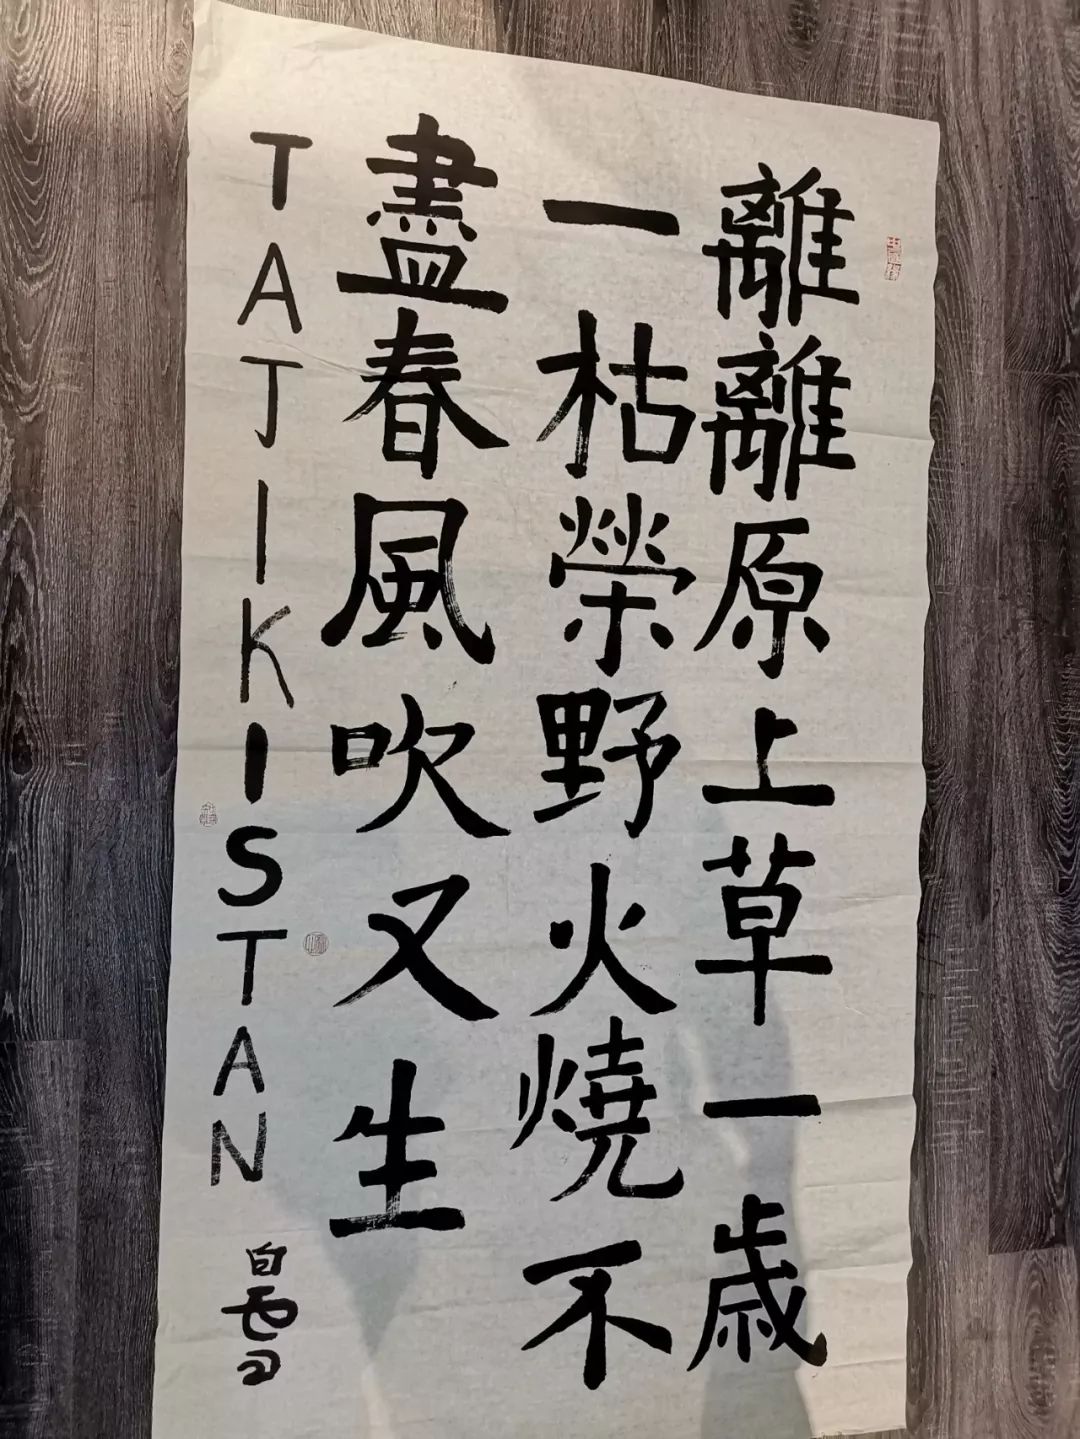 離離原上草一歲
一枯榮野火燒不
盡春風吹又生
TAJIKISTAN
白雪